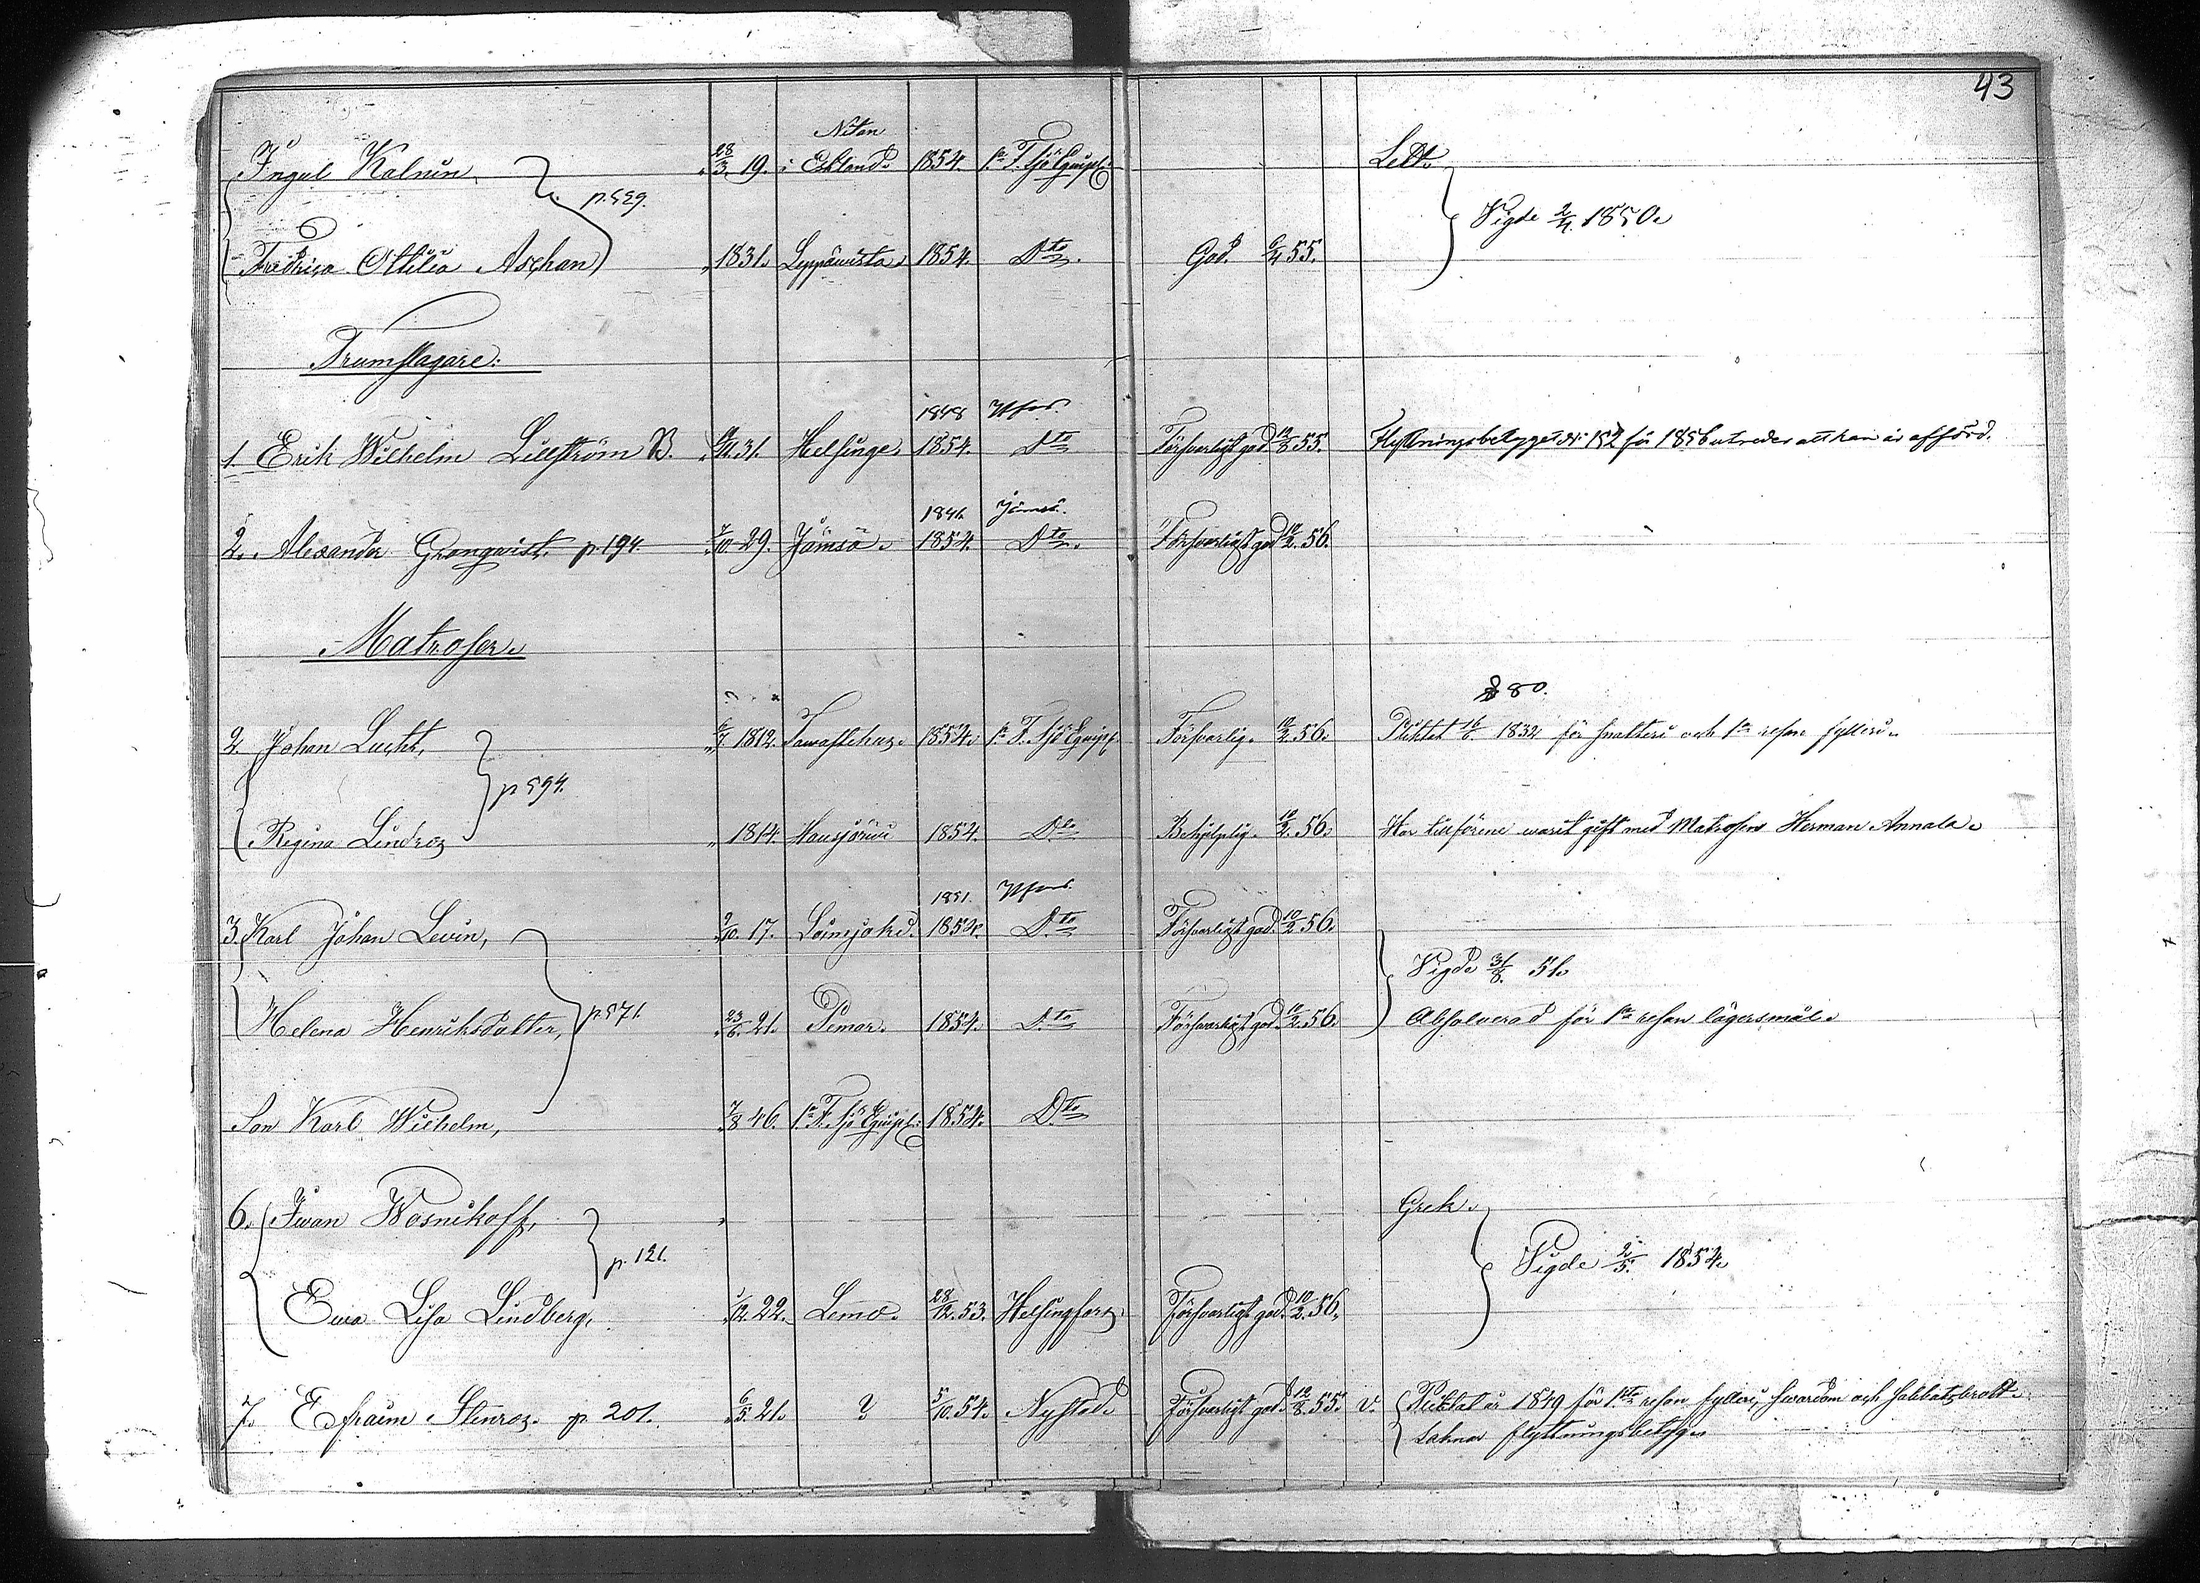 43
Nitau
Ingul Kalnin 28/3 19. i Estland. 1854. 1a F. Sjö Equip: Lett.
p. 529. Vigde 2/4 1850.
Fredrica Ottilia Aschan 1831. Leppävirta. 1854. Dto. God. 6/4 55.
Trumslagare:
1848 Hfors.
1. Erik Wilhelm Lillström B. 31. Helsinge. 1854. Dto Försvarligt god. 12/8 55. Flyttningsbetyget N: 152 för 1856 utreder att han är afförd.
1846 Jämsä.
2. Alexander Grönqvist. p. 194. 7/10 29. Jämsä. 1854. Dto. Försvarligt god 10/2. 56.
Matroser.
80.
2. Johan Lucht, 6/7 1812. Tavastehus. 1854. 1a F. Sjö Equip: Försvarlig. 10/2. 56. Pliktat 16/6. 1832 för snatteri och 1a resan fylleri.
p 594.
Regina Lindros 1814. Hausjärvi 1854. Dto Behjelplig. 10/2. 56. Har tillförene varit gift med Matrosen Herman Annala.
1851. Hfors.
3. Karl Johan Levin, 9/10. 17. Loimijoki. 1854. Dto Försvarligt god. 10/2 56.
Vigde 31/8. 51.
Helena Henriksdotter, p. 571. 23/6. 21. Pemar. 1854. Dto Försvarligt god. 10/2. 56. Absolverad för 1a resan lägersmål.
Son Karl Wilhelm, 7/8 46. 1a F. Sjö Equip: 1854. Dto
6. Iwan Wosnikoff, Grek.
p. 121. Vigde 2/5. 1854.
Ewa Lisa Lindberg, 1/12. 22. Lemo. 28/12. 53. Helsingfors. Försvarligt god. 10/2. 56.
7. Efraim Stenros. p. 201. 6/5 21. ? 5/10. 54. Nystad. Försvarligt god. 12/8. 55. v. Pliktat år 1849 för 1sta resan fylleri, svordom och sabbatsbrott.
Saknar flyttningsbetyg.